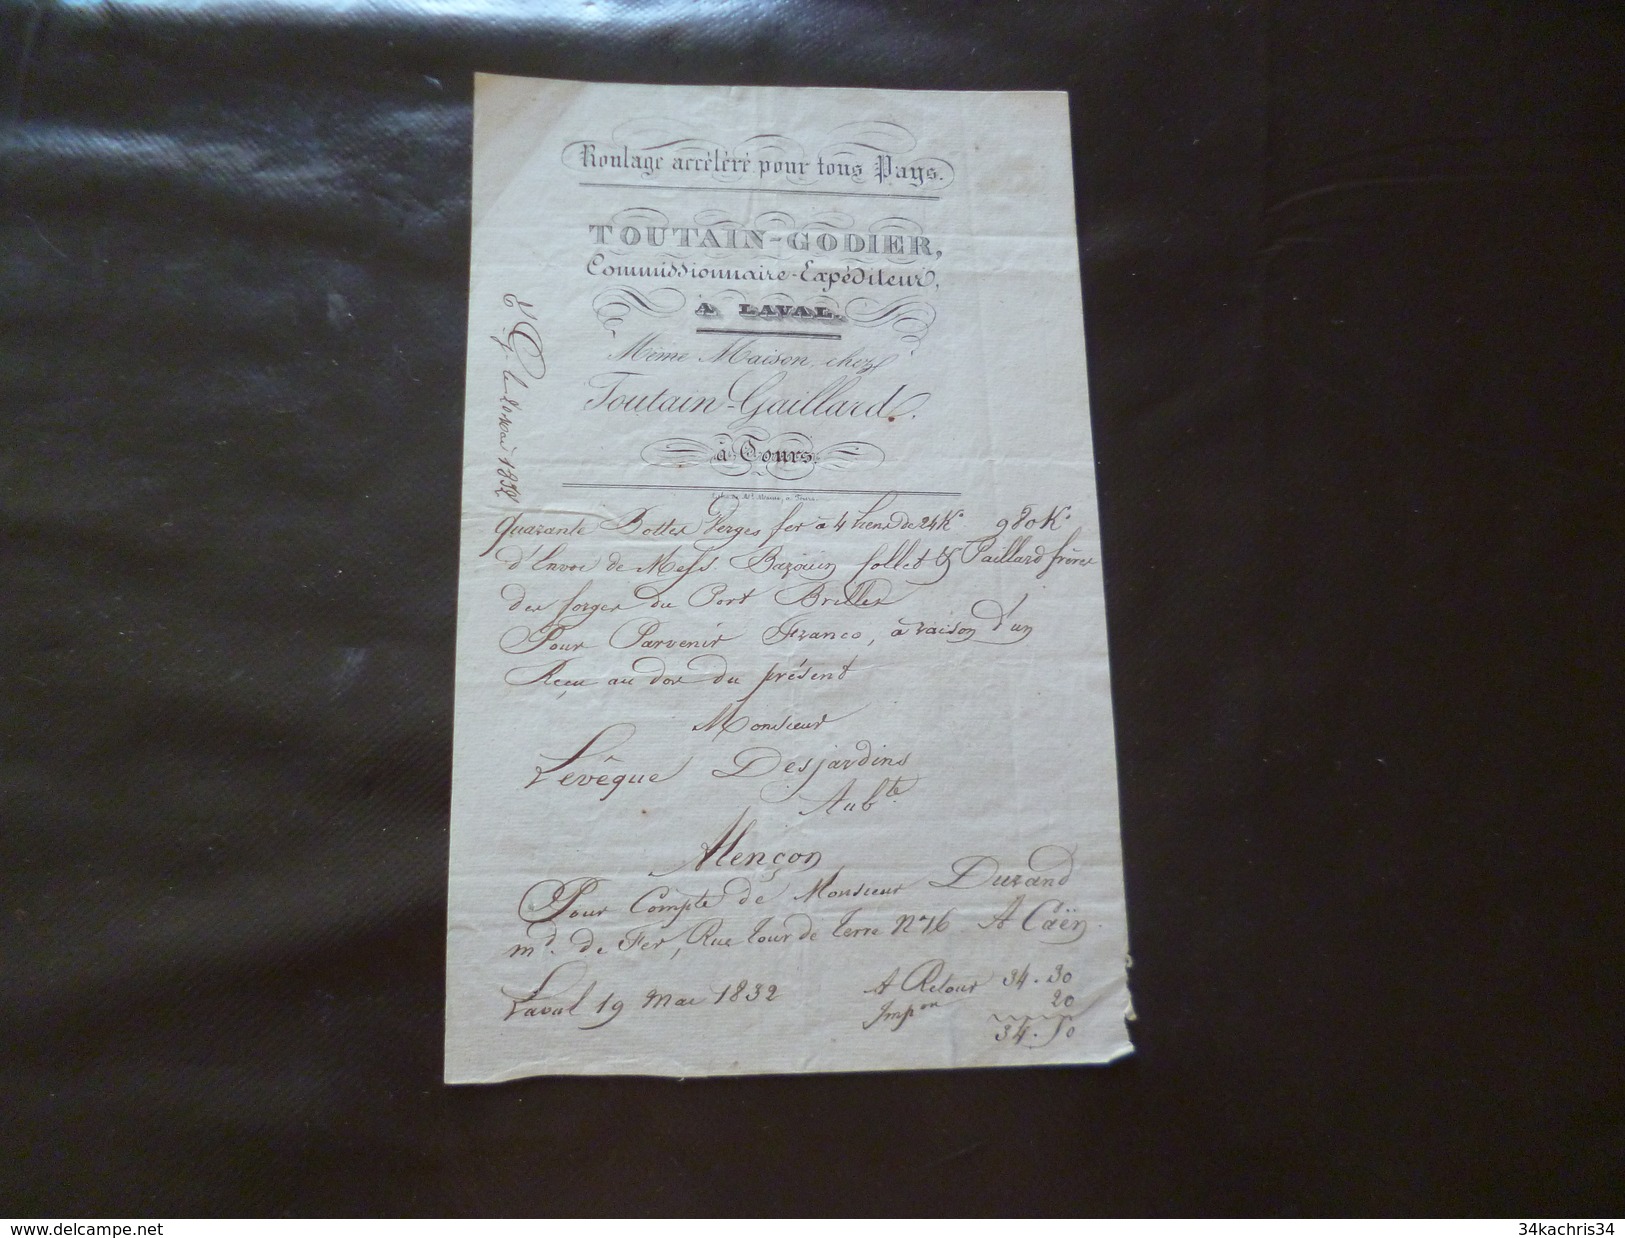 Roulage accéléré pour tous Pays.
TOUTAIN-GODIER,
Commissionnaire-Expéditeur,
A LAVAL.
Même Maison, chez
Toutain-Gaillard.
à Tours.
le 20 mai 1832
Quarante Bottes Verges fer à 4 liens de 24 K° 980 K°
d'Envoi de Mess. Bazouin follet & Paillard frères
des forges du Port Brillet
Pour Parvenir Franco, à raison d'un
Reçu au dos du présent
Monsieur
Levêque Desjardins
Aubte
Alençon
Pour Compte de Monsieur Durand
md. de Fer, Rue tour de terre N° 16 A Caën.
Laval 19 Mai 1832
A Retour 34.30
Impon 20
34.50
www.delcampe.net
34kachris34